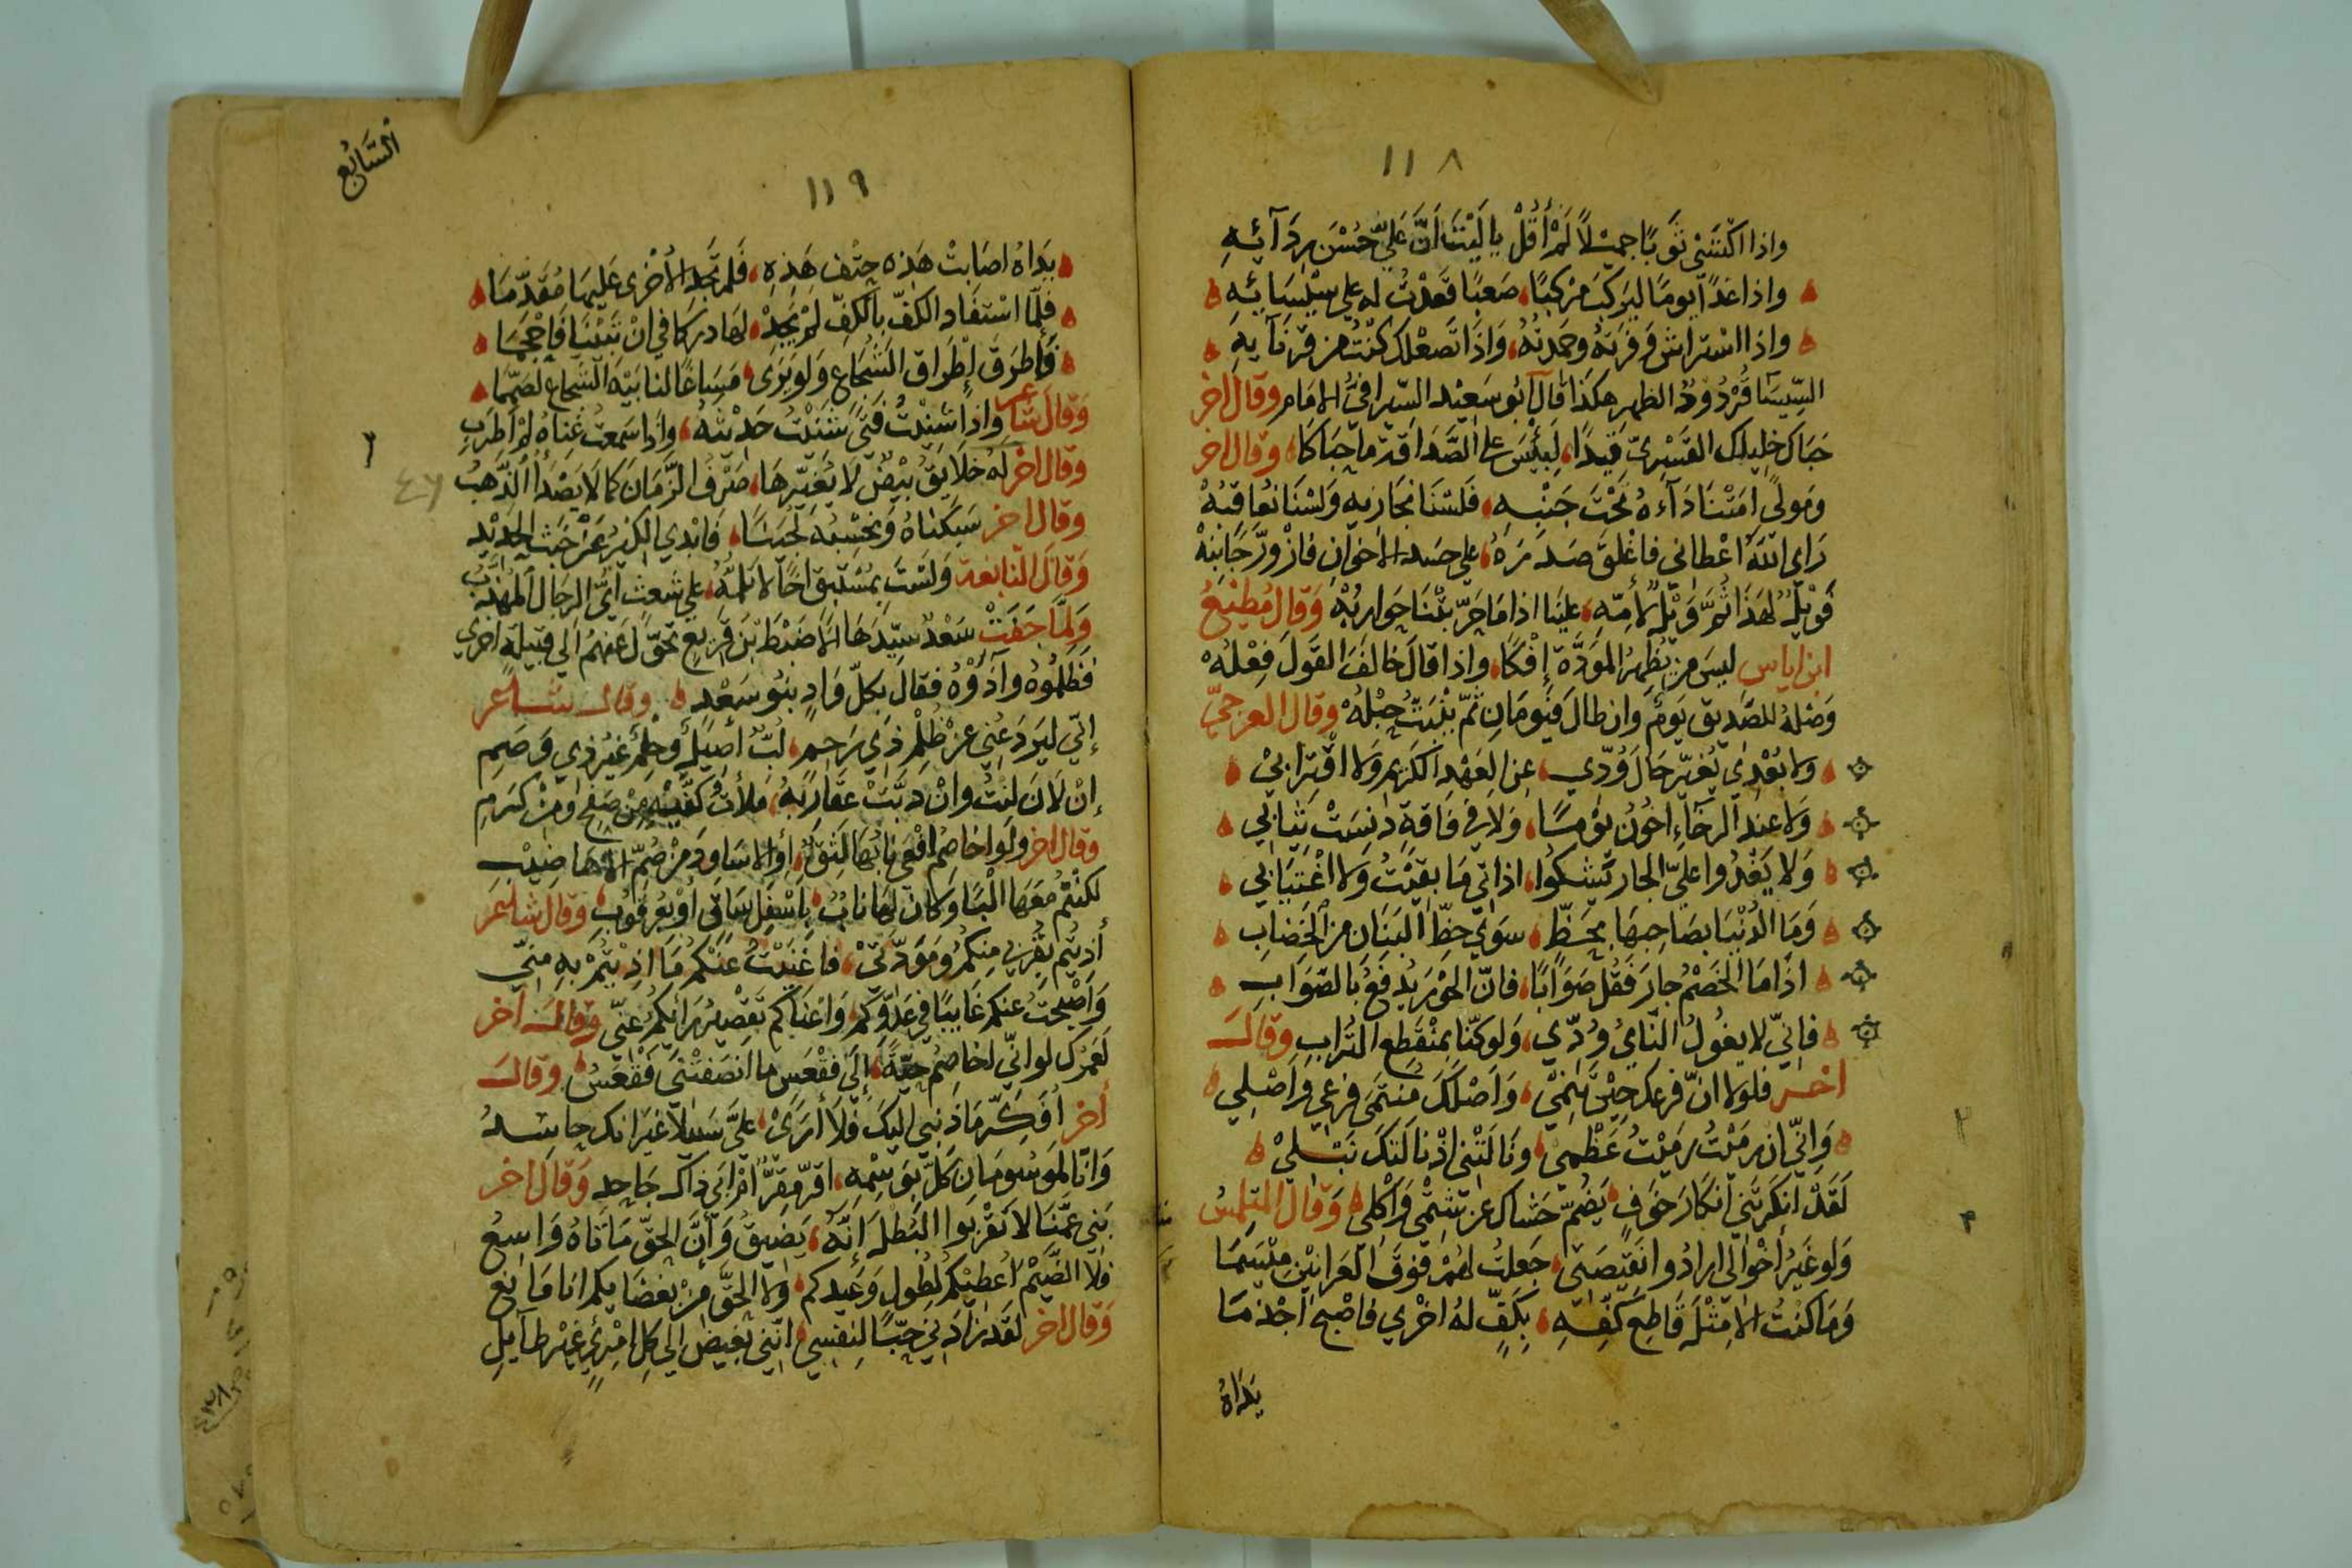 ١١٨
واذا اكتسى ثوبًا جميلًا لم أقل يا ليت أنّ عليّ حسن ردآئه
واذا غدا يومًا ليركب مركبًا صعبًا قعدت له علي سيسائه
واذا استراش وفرته وحمدته واذا تصعلك كنت من قرنآيه
السيسا قردود الظهر هكذا قال ابو سعيد السيرافي الامام وقال اخر
حباك خليلك القسري قيدا لبئس على الصداقة ما حباكا وقال اخر
ومولى امتنا دآءه تحت جنبه فلسنا نجازيه ولسنا نعاقبه
راي الله اعطاني فاغلق صدره على حسد الاخوان فازورّ جانبه
فويل لهذا ثم ويل لأمه علينا اذا ما حرّبتنا حواربه وقال مطيع
ابن اياس ليس من يظهر المودة إفكا واذا قال خالف القول فعله
وصله للصديق يوم وان طال فيومان ثم ينبت حبله وقال العرجيّ
ولا بعدي يغيّر حال ودّي عن العهد الكريم ولا اقترابي
ولا عند الرخآء اخون يومًا ولا في فاقة دنست ثيابي
ولا يغدوا عليّ الجار يشكوا اذاتي ما بقيت ولا اغتيابي
وما الدنيا بصاحبها بحظّ سوي حظّ البنان من الخضاب
اذا ما الخصم جار فقل صوابًا فانّ الجور يدفع بالصواب
فانّي لا يغول النأي ودّي ولو كنّا بمنقطع التراب وقال
اخر فلولا انّ فرعك حين ينمي واصلك منتمى فرعي واصلي
وانّي ان رميت رميت عظمي ونالتني اذا نالتك نبلي
لقد انكرتني انكار خوف يضمّ حشاك عن شتمي واكلي وقال المتلمس
ولو غير اخوالي ارادوا نقيصتي جعلت لهم فوق العرانين ميسما
وما كنت الا مثل قاطع كفّه بكفّ له اخري فاصبح اجذما
يداه
السّابع
١١٩
يداه اصابت هذه حتف هذه فلم تجد الأخرى عليها مقدّما
فلمّا استقاد الكفّ بالكفّ لم يجد لها دركا في ان تبينا فاحجما
فاطرق إطراق الشجاع ولو يرى مساغًا لنابيه الشجاع لصمّما
وقال شاعر واذا شنيت فتى شنيت حديثه واذا سمعت غناه لم أطرب
وقال اخر له خلايق بيض لا يغيّرها صرف الزمان كما لا يصدأ الذهب
وقال اخر سبكناه ونحسبه لجينا فابدي الكير عن خبث الحديد
وقال النابغة ولست بمستبق اخًا لا تلمه علي شعث ايّ الرجال المهذّب
ولمّا جفت سعد سيّدها الأضبط بن قريع تحوّل عنهم الي قبيلة اخري
فظلموه وآذوه فقال بكلّ واد بنو سعد وقال شاعر
إنّي ليردعني عن ظلم ذي رحم لبّ أصيل وحلم غير ذي وصم
إن لان لنت وان دبّت عقاربه ملأت كفّيه من صفح ومن كرم
وقال اخر ولو اخاصم افعى نابها لثق أو الاساود من صمّ الأهاضيب
لكنتم معها البًا وكان لها ناب باسفل ساق أو بعرقوب وقال شاعر
أذيتم بقربي منكم ومودّتي فاغنيت عنكم ما اذيتم به منّي
واصبحت عنكم غايبًا في عدوّكم واغناكم تقصير رائكم عنّي وقال اخر
لعمرك لو انّي اخاصم حيّة إلى فقعس ما انصفتني فقعس وقال
أخر أفكّر ما ذنبي اليك فلا أرى عليّ سبيلا غير انك حاسد
وانّا لموسومان كلّ بوسمه اقرّ مقرّ أم ابى ذاك جاحد وقال اخر
بني عمّنا لا تقربوا البطل إنّه يضيق وأنّ الحقّ ماتاه واسع
فلا الضّيم اعطيكم لطول وعيدكم ولا الحقّ من بغضايكم انا مانع
وقال اخر لقد زادني حبّا لنفسي انّني بغيض الي كل امرئ غير طايل